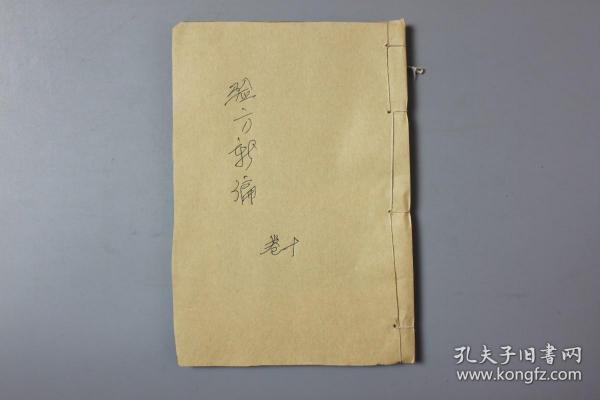 验方新编
卷十
孔夫子旧書网
www.kongfz.com